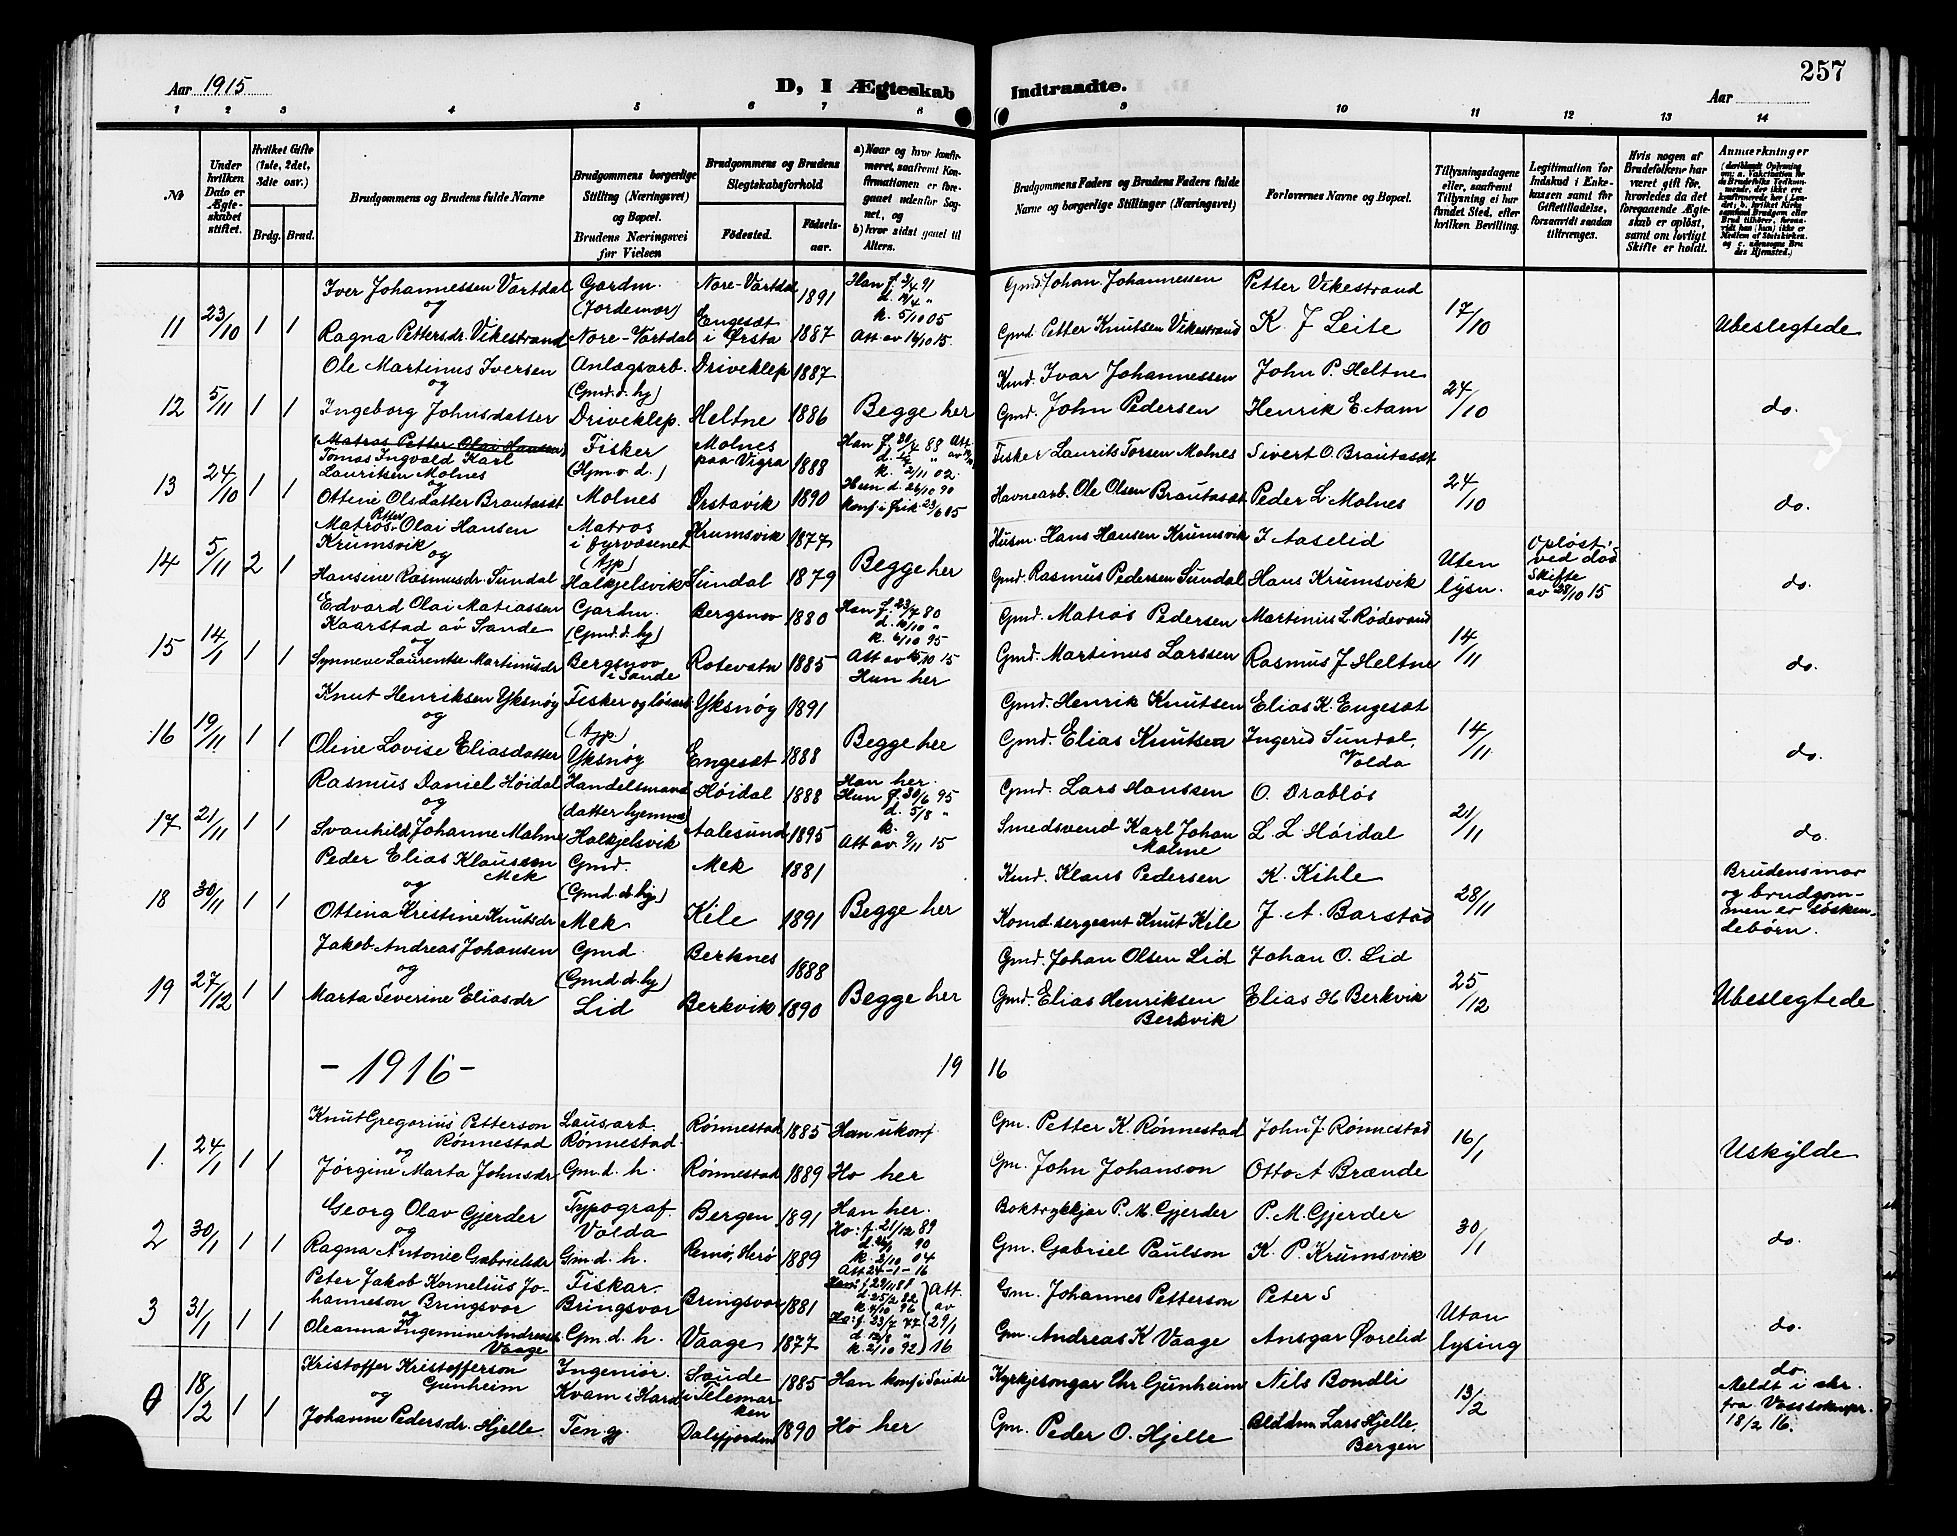 257
Aar 1915
D, I Ægteskab Indtraadte.
Aar
1 2 3 4 5 6 7 8 9 10 11 12 13 14
№
Under hvilken Dato er Ægteskabet stiftet.
Hvilket Gifte (1ste, 2det, 3die osv.)
Brdg. Brud.
Brudgommens og Brudens fulde Navne
Brudgommens borgerlige Stilling (Næringsvei) og Bopæl. Brudens Næringsvei før Vielsen
Brudgommens og Brudens Slegtskabsforhold
Fødested. Fødselsaar.
a) Naar og hvor konfirmeret, saafremt Konfirmationen er foregaaet udenfor Sognet, og b) hvor sidst gaaet til Alters.
Brudgommens Faders og Brudens Faders fulde Navne og borgerlige Stillinger (Næringsvei)
Forlovernes Navne og Bopæl.
Tillysningsdagene eller, saafremt Tillysning ei har fundet Sted, efter hvilken Bevilling.
Legitimation for Indskud i Enkekassen samt for Giftetilladelse, forsaavidt saadan tiltrænges.
Hvis nogen af Brudefolkene har været gift før, hvorledes da det foregaaende Ægteskab er opløst, samt om lovligt Skifte er holdt.
Anmærkninger
11 23/10 1 1 Iver Johannessen Vartdal Gardm. Nore-Vartdal 1891 Han f. 3/4 91 Gmd. Johan Johannessen Petter Vikestrand 17/10 Ubeslegtede
og (Jordemor) k. 5/10 05
Ragna Pettersdr. Vikestrand Nore-Vartdal Engesæt i Ørsta 1887 Att av 14/10 15. Gmd Petter Knutsen Vikestrand K. J Leite
12 5/11 1 1 Ole Martinus Iversen Anlægsarb. Driveklep 1887 Begge her Kmd. Ivar Johannessen John P. Heltne 24/10 do.
og (Gmd. d. hj)
Ingeborg Johnsdatter Driveklep. Heltne 1886 Gmd. John Pedersen Henrik E. Aam
(Matros Petter Olai Hansen)
13 24/10 1 1 Tomas Ingvald Karl Lauritsen Molnes Fisker Molnes paa Vigra 1888 Fisker Laurits Torsen Molnes Sivert O. Brautaset 24/10 do.
og (Hjm. o. d.) k. 2/11 02.
Ottine Olsdatter Brautaset Molnes Ørstavik 1890 Hun d. 26/10 90 Havnearb. Ole Olsen Brautaset Peder L Molnes
14 5/11 2 1 Matros Petter Olai Hansen Krumsvik Matros i fyrvæsenet Krumsvik 1877 Begge her Husm. Hans Hansen Krumsvik J Aaselid Uten lysn. Opløst ved død Skifte av 28/10 15 do.
og
Hansine Rasmusdr. Sundal Halkjelsvik Sundal 1879 Gmd. Rasmus Pedersen Sundal Hans Krumsvik
15 14/1 1 1 Edvard Olai Matiassen Kaarstad av Sande Gardm. Bergsnov 1880 Han f. 23/7 80 Gmd. Matias Pedersen Martinus L Rødevand 14/11 do.
og (Gmd. d. hj) k. 6/10 95
Synneve Laurentse Martinusdr Bergsnov i Sande Rotevatn 1885 Att av 15/10 15 Hun her Gmd. Martinus Larssen Rasmus J Heltne
16 19/11 1 1 Knut Henriksen Yksnøy Fisker og løsarb Yksnøy 1891 Begge her Gmd. Henrik Knutsen Elias K. Engesæt 14/11 do.
og
Oline Lovise Eliasdatter Yksnøy Engesæt 1888 Gmd. Elias Knutsen Ingerid Sundal, Volda
17 21/11 1 1 Rasmus Daniel Høidal Handelsmand Høidal 1888 Han her. Hun f. 30/6 95 Gmd. Lars Hanssen O. Drabløs 21/11 do.
og (datter hjemme) d. 5/8 " k.
Svanhild Johanne Malme Halkjelsvik Aalesund 1895 Att av 9/11 15 Smedsvend Karl Johan Malme L. L Høidal
18 30/11 1 1 Peder Elias Klaussen Mek Gmd. Mek 1881 Begge her Kmd. Klaus Pedersen K. Kihle 28/11 Brudens mor og brudgommen er søskendebørn.
og (Gmd. d. hj.)
Ottina Kristine Knutsdr Mek Kile 1891 Komd. sergeant Knut Kile J. A. Barstad
19 27/12 1 1 Jakob Andreas Johansen Gmd. Berknes 1888 Begge her Gmd. Johan Olsen Lid Johan O. Lid 25/12 Ubeslegtede
og (Gmd. d. hj)
Marta Severine Eliasdr Lid Berkvik 1890 Gmd. Elias Henriksen Berkvik Elias H Berkvik
- 1916 - 19 16
1. 24/1 1 1 Knut Gregorius Petterson Rønnestad Lausarb. Rønnestad Rønnestad 1885 Han ukonf. Gm. Petter K. Rønnestad John J Rønnestad 16/1 Uskylde
og
Jørgine Marta Johnsdr Gm. d. h. Rønnestad 1889 Ho her Gm. John Johanson Otto A Brænde
2 30/1 1 1 Georg Olav Gjerder Typograf Volda Bergen 1891 Han her. Ho: f. 21/12 89 Boktrykkjar P. M. Gjerder P. M. Gjerder 30/1 do.
og
Ragna Antonie Gabrielsdr Gm. d. h. Remø, Herø 1889 k. 2/10 04 Att 24-1-16 Gm. Gabriel Paulson K. P. Krumsvik
3 31/1 1 1 Peter Jakob Kornelius Johanneson Bringsvor Fiskar. Bringsvor Bringsvor 1881 Att. av 29/1 16 Gm. Johannes Petterson Peter S Utan lysing do.
og
Oleanna Ingemine Andreasdr Vaage Gm. d. h. Vaage 1877 k. 2/10 92 Gm. Andreas K Vaage Ansgar Øvrelid
18/2 1 1 Kristoffer Kristofferson Gunheim Ingeniør. Kvam i Hard Saude i Telemarken 1885 Han konf. i Saude Kyrkjesongar Chr Gunheim Nils Bondli 13/2 do. Meldt i skr. fra Vossesoknepr. 18/2 16.
og
Johanne Pedersdr. Hjelle Ten. gj. Dalsfjorden 1890 Ho her Gm. Peder O. Hjelle Lars Hjelle, Bergen